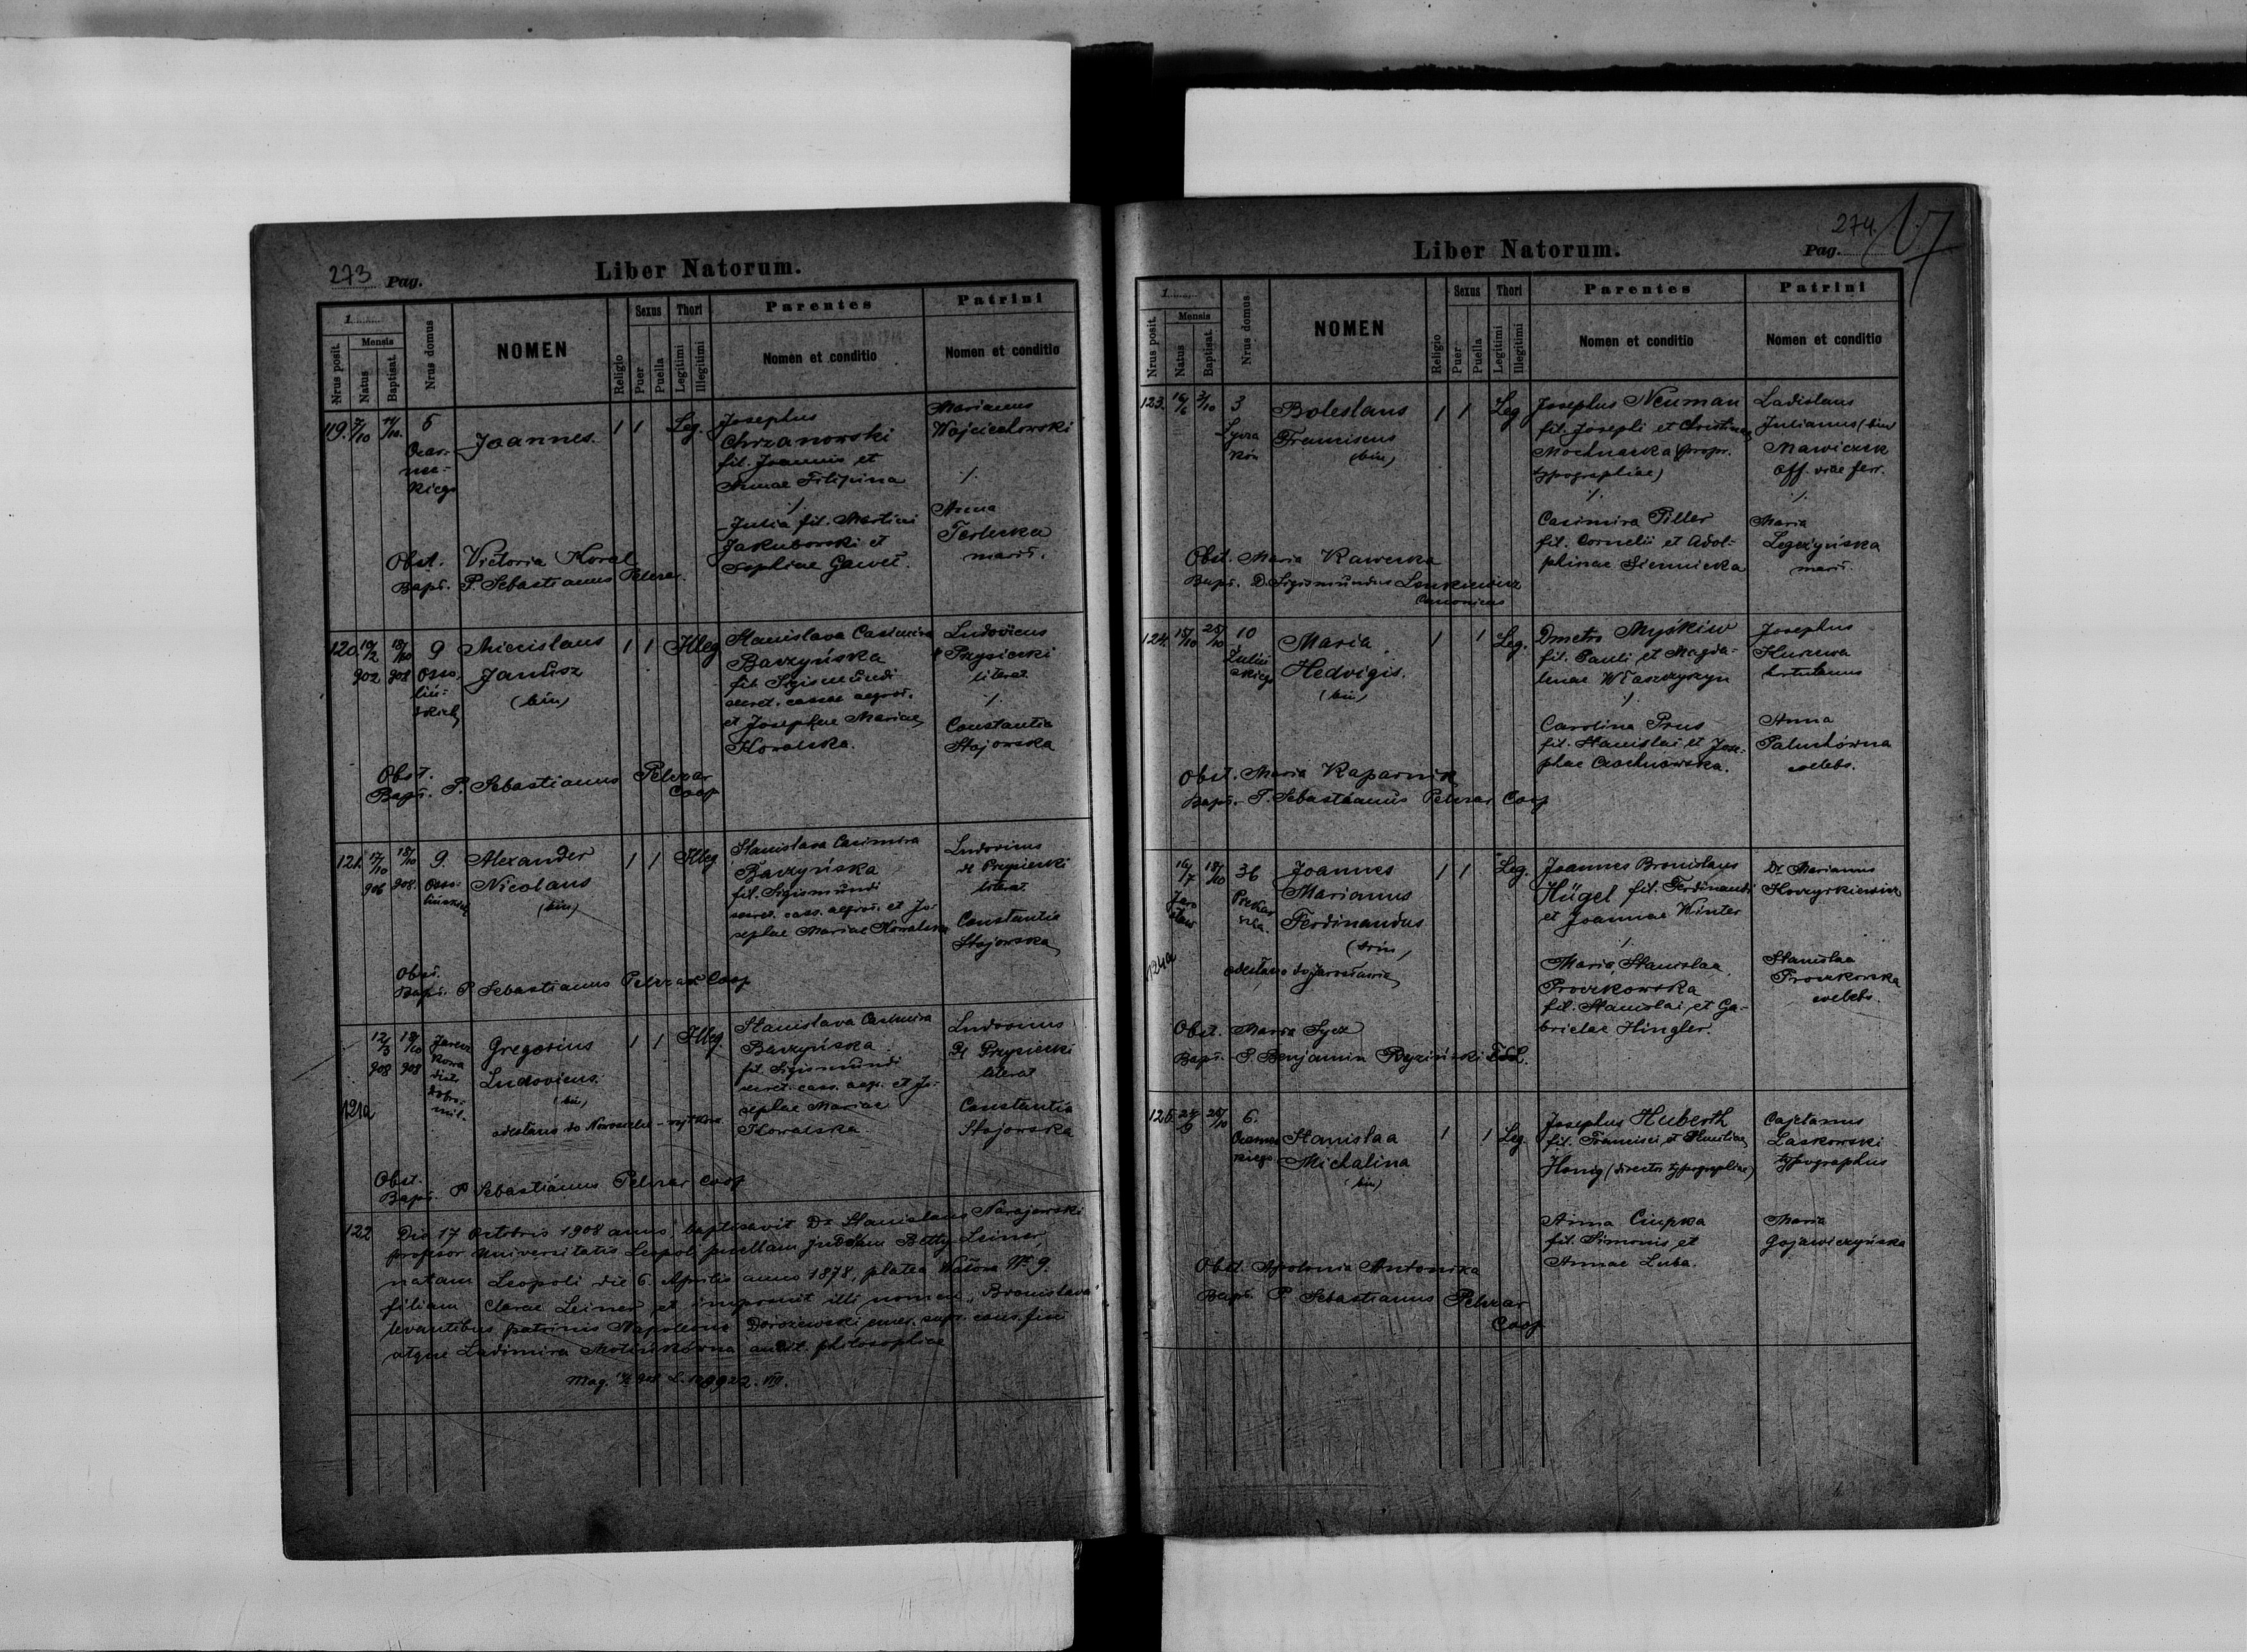 273 Pag.
Liber Natorum.
1.
Nrus posit.
Mensis
Natus
Baptisat.
Nrus domus
NOMEN
Religio
Sexus
Puer
Puella
Thori
Legitimi
Illegitimi
Parentes
Nomen et conditio
Patrini
Nomen et conditio
119. 7/10 11/10. 5
Joannes.
1 1 Leg.
Josephus
Chrzanowski
fil. Joannis et
Annae Filipina
/.
Julia fil. Martini
Jakubowski et
Sophiae Gaweł.
Marianus
Wojciechowski
/.
Anna
Terlecka
Obst. Victoria Koral
Bapt. P. Sebastianus Pelczar.
120. 19/2 902 18/10 908 9
Osso-
liń-
skich
Miecislaus
Janusz
(bin)
1 1 Illeg
Stanislava Casimira
Barzyńska
fil. Sigismundi
secret. cassae aegrot.
et Josephae Mariae
Kowalska.
Ludovicus
Przysiecki
literat
/.
Constantia
Stojowska
Obst.
Bapt. P. Sebastianus Pelczar
Coop
121. 17/10 906 18/10 908. 9.
Osso-
lińskich
Alexander
Nicolaus
(bin)
1 1 Illeg
Stanislava Casimira
Barzyńska
fil. Sigismundi
secret. cass. aegrot. et Jo-
sephae Mariae Kowalska
Ludovicus
Przysiecki
literat
Constantia
Stojowska
Obst.
Bapt. P Sebastianus Pelczar Coop
121a
12/3 908 18/10 908
Gregorius
Ludovicus.
(bin)
1 1 Illeg.
Stanislava Casimira
Barzyńska
fil. Sigismundi
secret. cass. aegr. et Jo-
sephae Mariae
Kowalska.
Ludovicus
Przysiecki
literat
Constantia
Stojowska
Obst.
Bapt. P Sebastianus Pelczar Coop
122 Die 17 Octobris 1908 anni baptisavit Dr Stanislaus Narajewski
profesor Universitatis Leopol. puellam Judaeam Betty Leiner,
natam Leopoli die 6. Aprilis anno 1878, platea Wałowa No 9.
filiam Clarae Leiner et imposuit illi nomen "Bronislava"
levantibus patrinis Napoleone
atque Ladimira audit. philosophiae
Pag. 274.
Liber Natorum.
1.
Nrus posit.
Mensis
Natus
Baptisat.
Nrus domus
NOMEN
Religio
Sexus
Puer
Puella
Thori
Legitimi
Illegitimi
Parentes
Nomen et conditio
Patrini
Nomen et conditio
123. 16/6 3/10 3
Łycza
ków
Boleslaus
Franciscus
(bin)
1 1 Leg
Josephus Neuman
fil. Josephi et Christinae
Mochnacka (propr.
typographiae)
/.
Casimira Piller
fil. Cornelii et Adol-
phinae Siennicka
Ladislaus
Julianus (bin)
off. viae ferr.
/.
Maria
Legeżyńska
Obst. Maria Kawecka
Bapt. D. Sigismundus
Canonicus
124. 15/10 25/10 10
Maria
Hedvigis.
(bin)
1 1 Leg.
Dmetro Myśkiw
fil. Pauli et Magda-
lenae Własczyszyn
/.
Carolina Prus
fil. Stanislai et Jose-
phae Czochnowska.
Josephus
hortulanus
Anna
Paluchówna
coelebs.
Obst. Maria Kaparnik
Bapt. P. Sebastianus Pelczar Coop
124a
16/7 18/10 36
Jaro
sław
Piekar
ska.
Joannes
Marianus
Ferdinandus
(trin)
odesłano do Jarosławia
1 1 Leg.
Joannes Bronislaus
Hügel fil. Ferdinandi
et Joannae Winter
/.
Maria Stanislaa
Proczkowska
fil. Stanislai et Ga-
brielae Hingler.
Dr Marianus
Stanislaa
Proczkowska
coelebs.
Obst. Maria Syez
Bapt. P. Benjamin
125. 24/9 25/10 6.
Stanislaa
Michalina
(bin)
1 1 Leg
Josephus Huberth
fil. Francisci et
Honig (director typographiae)
Anna Ciupka
fil. Simonis et
Annae Luba.
Cajetanus
Laskowski
typographus
Maria
Gojawiczyńska
Obst. Apolonia Antonika
Bapt. P. Sebastianus Pelczar
Coop